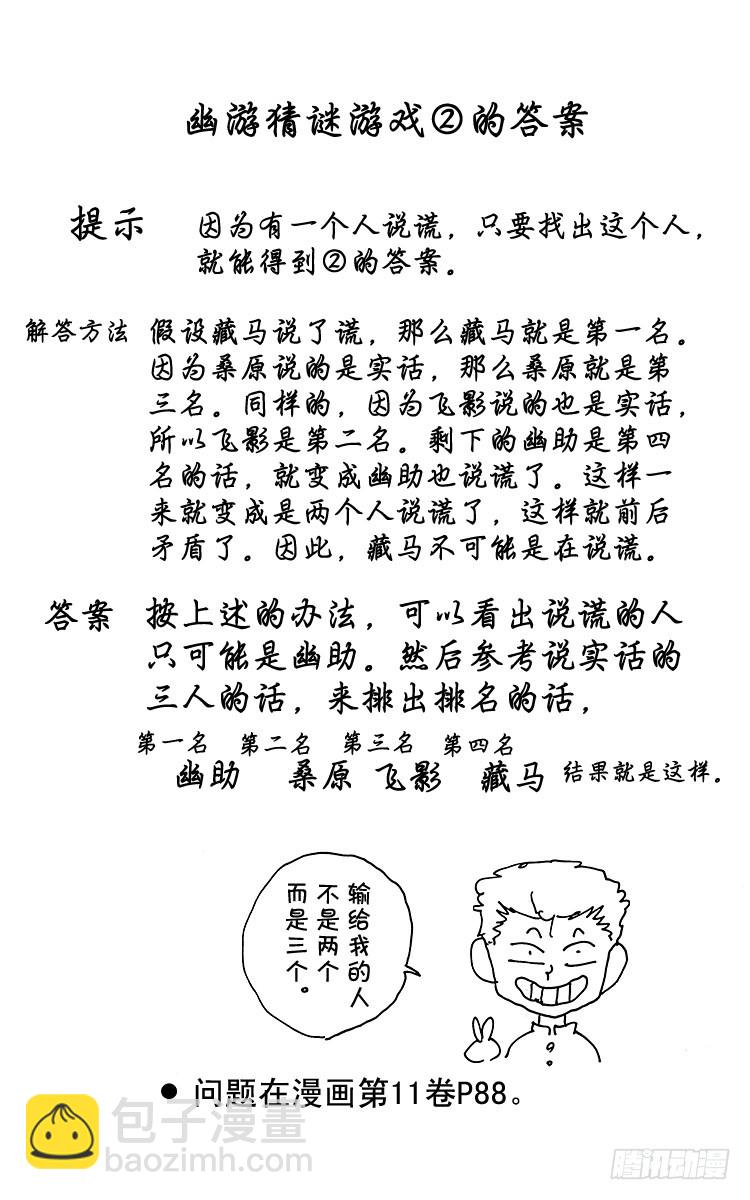 幽游猜谜游戏②的答案
提示
因为有一个人说谎，只要找出这个人，
就能得到②的答案。
解答方法
假设藏马说了谎，那么藏马就是第一名。
因为桑原说的是实话，那么桑原就是第
三名。同样的，因为飞影说的也是实话，
所以飞影是第二名。剩下的幽助是第四
名的话，就变成幽助也说谎了。这样一
来就变成是两个人说谎了，这样就前后
矛盾了。因此，藏马不可能是在说谎。
答案
按上述的办法，可以看出说谎的人
只可能是幽助。然后参考说实话的
三人的话，来排出排名的话，
第一名 第二名 第三名 第四名
幽助 桑原 飞影 藏马 结果就是这样。
输给我的人
不是两个
而是三个。
●问题在漫画第11卷P88。
包子漫畫
baozimh.com
腾讯动漫